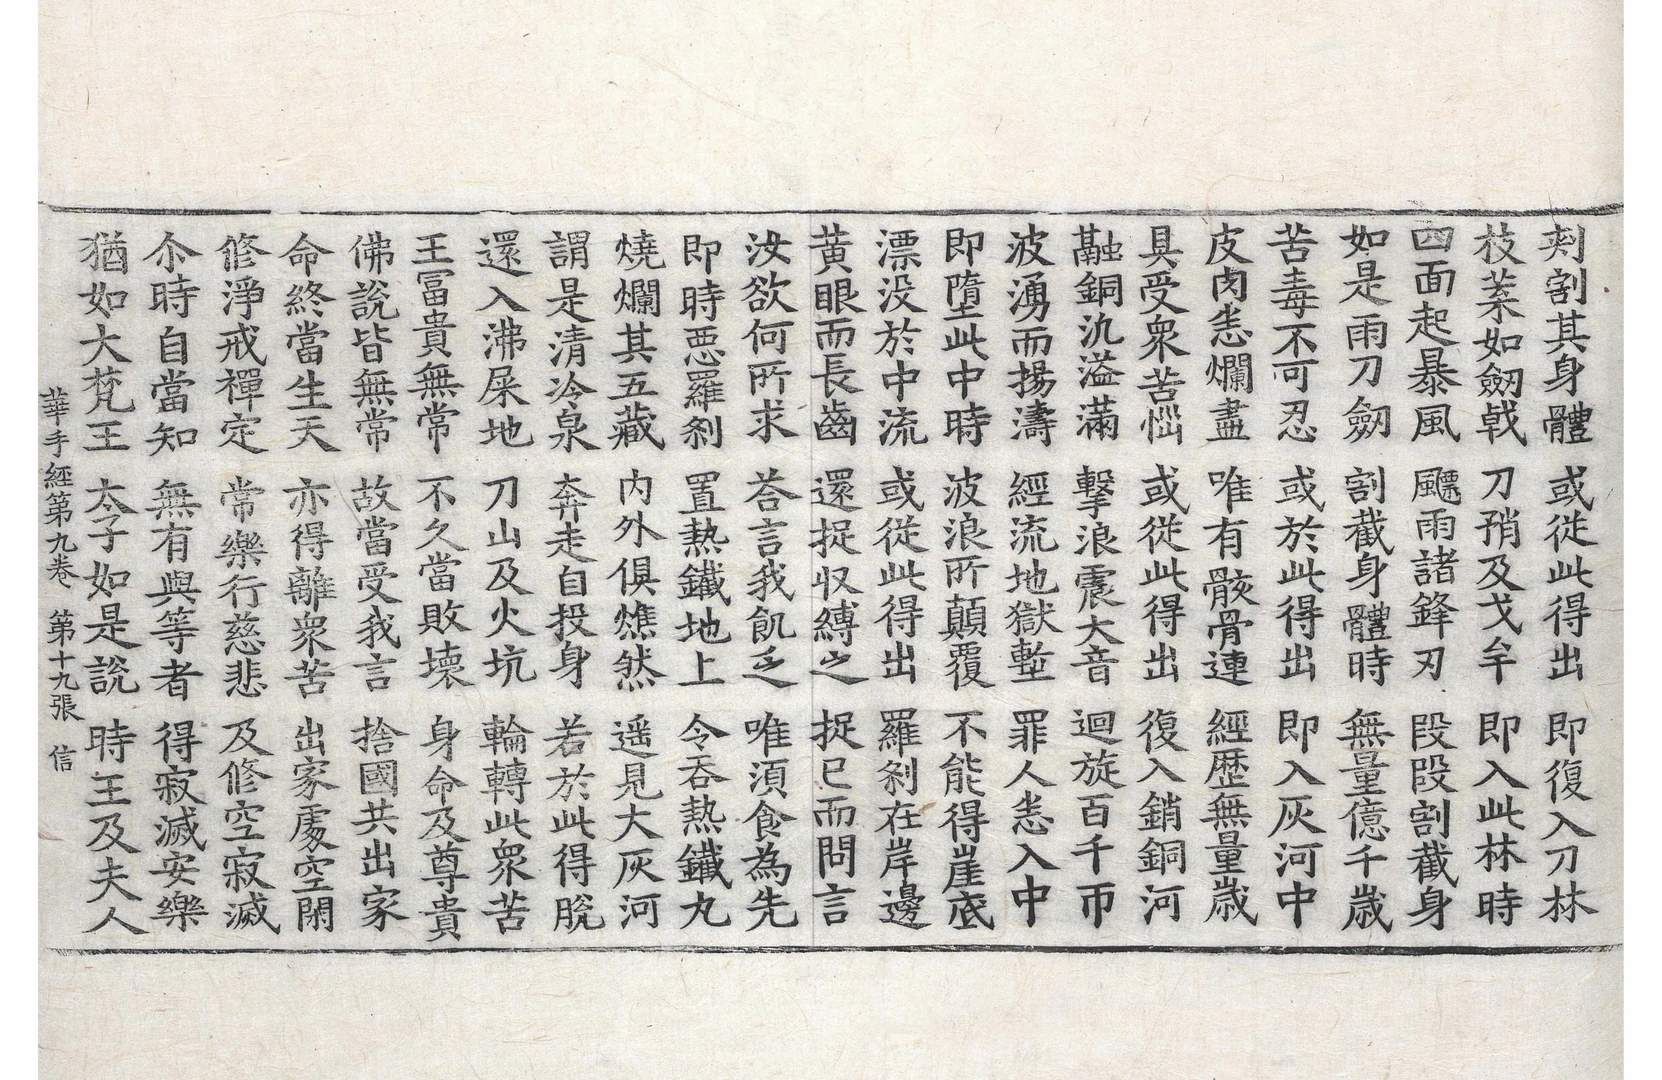 剗割其身體 或從此得出 即復入刀林
枝葉如劒戟 刀矟及戈牟 即入此林時
四面起暴風 飄雨諸鋒刃 段段割截身
如是雨刀劒 割截身體時 無量億千歳
苦毒不可忍 或於此得出 即入灰河中
皮肉悉爛盡 唯有骸骨連 經歴無量歳
具受衆苦惱 或從此得出 復入銷銅河
融銅沇溢滿 撃浪震大音 迴旋百千帀
波湧而揚濤 經流地獄塹 罪人悉入中
即墮此中時 波浪所顛覆 不能得崖底
漂没於中流 或從此得出 羅刹在岸邊
黄眼而長齒 還捉収縛之 捉已而問言
汝欲何所求 荅言我飢乏 唯湏食為先
即時惡羅刹 置熱鐵地上 令吞熱鐵丸
燒爛其五藏 内外俱燋然 遥見大灰河
謂是清冷泉 奔走自投身 若於此得脫
還入沸屎地 刀山及火坑 輪轉此衆苦
王冨貴無常 不久當敗壞 身命及尊貴
佛説皆無常 故當受我言 捨國共出家
命終當生天 亦得離衆苦 出家處空閑
修淨戒禪定 常樂行慈悲 及修空寂滅
尒時自當知 無有與等者 得寂滅安樂
猶如大梵王 太子如是説 時王及夫人
華手經第九卷 第十九張 信